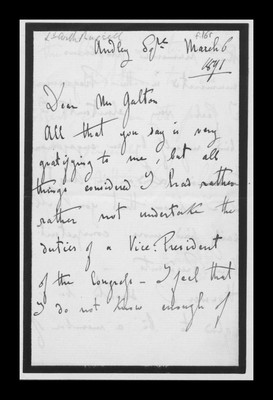 Audley Sqre March 6
1891
Dear Mr Galton
All that you say is very
gratifying to me, but all
things considered I had rather
rather not undertake the
duties of a Vice. President
of the Congress - I feel that
I do not know enough of